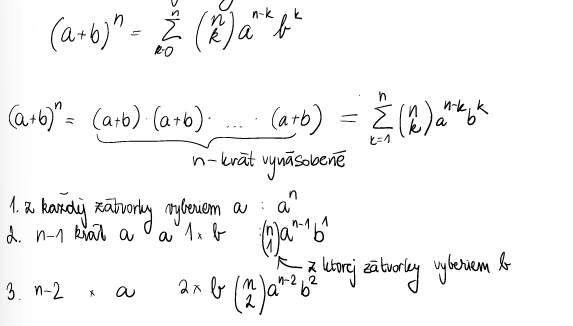 (a+b)^n = \sum_{k=0}^{n} \binom{n}{k} a^{n-k} b^k
(a+b)^n = (a+b) \cdot (a+b) \cdot ... \cdot (a+b) = \sum_{k=1}^{n} \binom{n}{k} a^{n-k} b^k
n-krát vynásobené
1. z každej zátvorky vyberiem a : a^n
2. n-1 krát a a 1× b : \binom{n}{1} a^{n-1} b^1
z ktorej zátvorky vyberiem b
3. n-2 × a 2× b \binom{n}{2} a^{n-2} b^2